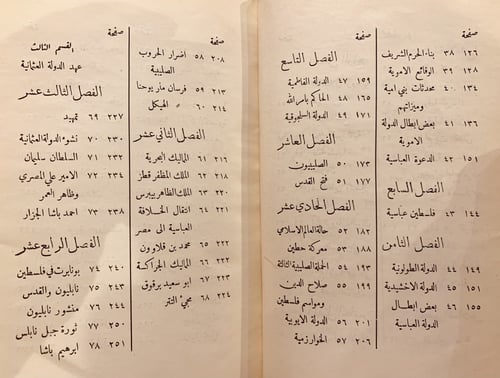 صفحة
١٢٦ ٣٨ بناء الحرم الشريف
١٢٨ ٣٩ الوقائع الاموية
١٣٤ ٤٠ محدثات بني امية
وميزاتهم
١٣٦ ٤١ بعض ابطال الدولة
الاموية
١٥١ ٤٢ الدعوة العباسية
الفصل السابع
١٤٤ ٤٣ فلسطين عباسية
الفصل الثامن
١٤٩ ٤٤ الدولة الطولونية
١٥١ ٤٥ الدولة الاخشيدية
١٥٥ ٤٦ بعض ابطال
الدولة العباسية
صفحة
الفصل التاسع
١٥٩ ٤٧ الدولة الفاطمية
١٦٥ ٤٨ الحاكم بامر الله
١٧١ ٤٩ الدولة السلجوقية
الفصل العاشر
١٧٣ ٥٠ الصليبيون
١٧٧ ٥١ فتح القدس
الفصل الحادي عشر
١٨٢ ٥٢ حالة العالم الاسلامي
١٨٨ ٥٣ معركة حطين
١٩٣ ٥٤ الحملة الصليبية الثالثة
١٩٩ ٥٥ صلاح الدين
ومواسم فلسطين
٢٠١ ٥٦ الدولة الايوبية
٢٠٦ ٥٧ الخوارزمية
صفحة
٢٠٨ ٥٨ اضرار الحروب
الصليبية
٢١٣ ٥٩ فرسان مار يوحنا
٢١٤ ٦٠ » الهيكل
الفصل الثاني عشر
٢١٦ ٦١ المماليك البحرية
٢١٨ ٦٢ الملك المظفر قطز
٢٢٠ ٦٣ الملك الظاهر بيبرس
٢٢١ ٦٤ انتقال الخلافة
العباسية الى مصر
٢٢٢ ٦٥ محمد بن قلاوون
٢٢٢ ٦٦ المماليك الجراكسة
٢٢٣ ٦٧ ابو سعيد برقوق
٢٢٤ ٦٨ مجيء التتر
صفحة
القسم الثالث
عهد الدولة العثمانية
الفصل الثالث عشر
٢٢٧ ٦٩ تمهيد
٢٣٠ ٧٠ نشوء الدولة العثمانية
٢٣٢ ٧١ السلطان سليمان
٢٣٤ ٧٢ الامير علي المصري
وظاهر العمر
٢٣٨ ٧٣ احمد باشا الجزار
الفصل الرابع عشر
٢٤٠ ٧٤ بونابرت في فلسطين
٢٤٣ ٧٥ نابليون والقدس
٢٤٤ ٧٦ منشور نابليون
٢٥٠ ٧٧ ثورة جبل نابلس
٢٥١ ٧٨ ابرهيم باشا